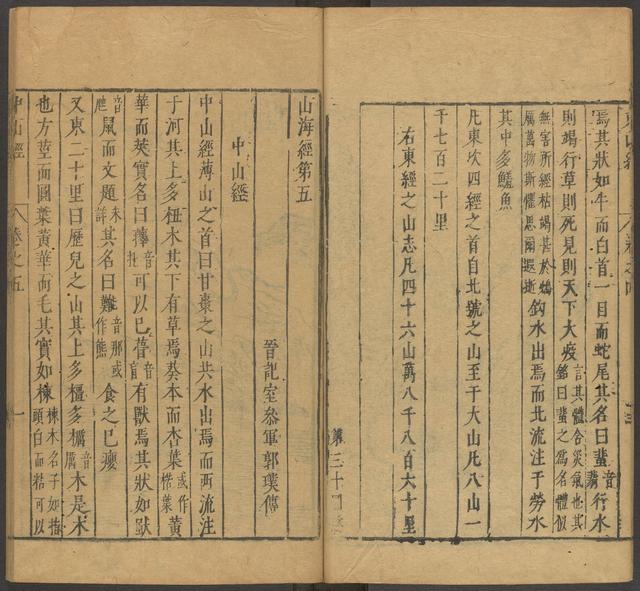 焉其狀如牛而白首一目而蛇尾其名曰蜚音翡行水
則竭行草則死見則天下大疫言其體含災氣也其銘曰蜚之為名體似
無害所經枯竭甚於鴆厲萬物斯懼思爾遐逝鈎水出焉而北流注于勞水
其中多鱤魚
凡東次四經之首自北號之山至于大山凡八山一
千七百二十里
右東經之山志凡四十六山萬八千八百六十里
山海經第五
晉記室參軍郭璞傳
中山經
中山經薄山之首曰甘棗之山共水出焉而西流注
于河其上多杻木其下有草焉葵本而杏葉或作楛葉黃
華而莢實名曰蘀音托可以已瞢音盲有獸焉其狀如
音虺鼠而文題未詳其名曰難音那或作熊食之已癭
又東二十里曰歷兒之山其上多橿多櫔音厲木是木
也方莖而圓葉黃華而毛其實如楝楝木名子如指頭白而粘可以
中山經 卷之五 一